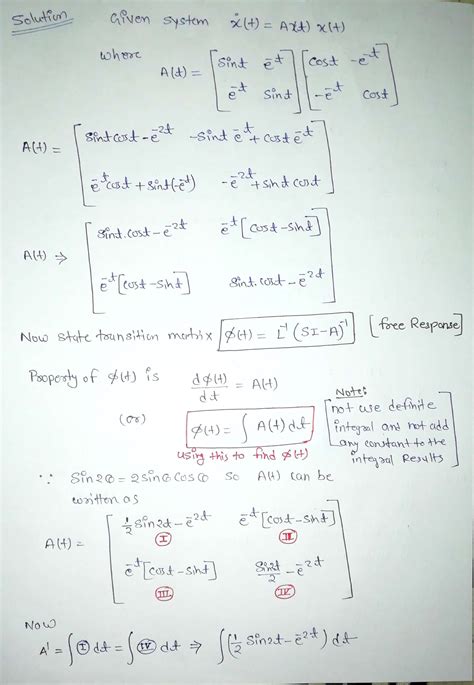 Solution Given system ẋ(t) = A(t) x(t)
where
A(t) = [sint e^-t; e^-t sint] [cost -e^-t; -e^-t cost]
A(t) = [sint cost - e^-2t -sint e^-t + cost e^-t; e^-t cost + sint(-e^-t) -e^-2t + sint cost]
A(t) ⇒ [sint.cost - e^-2t e^-t[cost - sint]; e^-t[cost - sint] sint.cost - e^-2t]
Now state transition matrix φ(t) = L^-1 (SI-A)^-1 [free Response]
Property of φ(t) is dφ(t)/dt = A(t)
(or) φ(t) = ∫ A(t) dt
using this to find φ(t)
Note:
not use definite
integral and not add
any constant to the
integral Results
∵ Sin2θ = 2sinθ cosθ so A(t) can be
written as
A(t) = [1/2 sin2t - e^-2t e^-t[cost - sint]; e^-t[cost - sint] sin2t/2 - e^-2t]
I II
III IV
Now
A' = ∫ I dt = ∫ IV dt ⇒ ∫(1/2 sin2t - e^-2t) dt